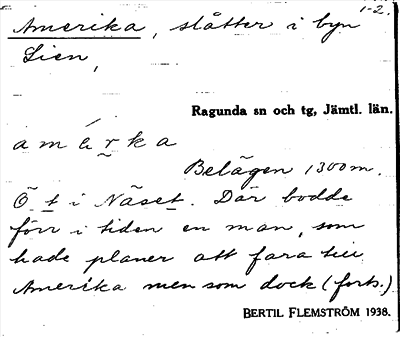 1-2.
Amerika, slåtter i byn
Lien,
Ragunda sn och tg, Jämtl. län.
a m é r k a
Belägen 1300 m.
Ö t i Näset. Där bodde
förr i tiden en man, som
hade planer att fara till
Amerika men som dock (forts.)
BERTIL FLEMSTRÖM 1938.